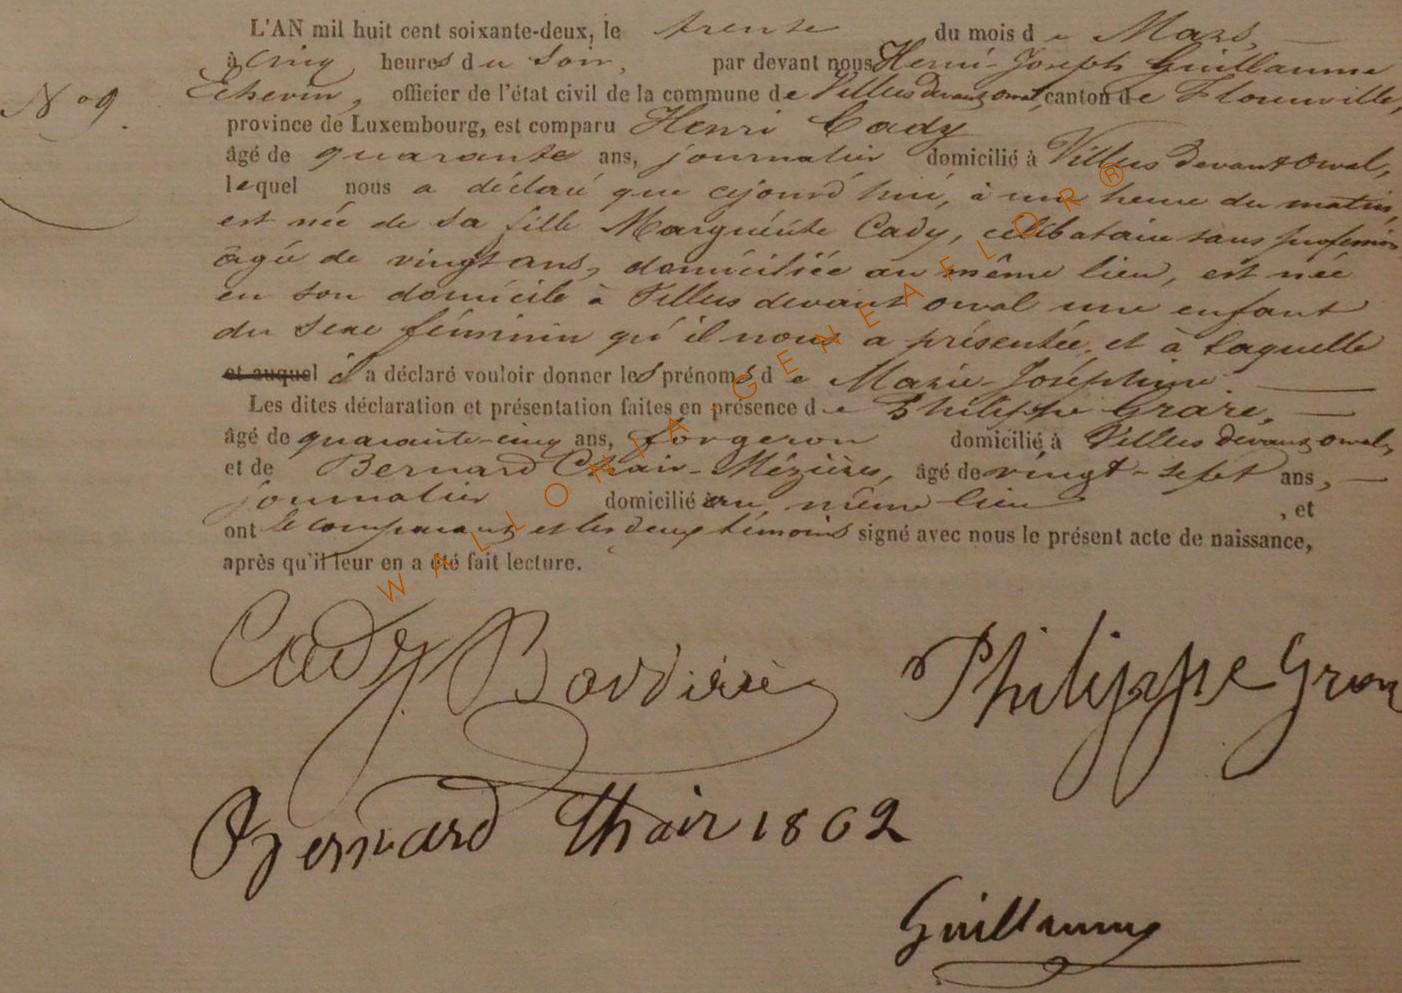 L'AN mil huit cent soixante-deux, le trente du mois de Mars,
à cinq heures du soir, par devant nous Henri-Joseph Guillaume
Echevin, officier de l'état civil de la commune de Villers devant orval, canton de Florenville,
N° 9.
province de Luxembourg, est comparu Henri Cady
âgé de quarante ans, journalier domicilié à Villers devant orval,
lequel nous a déclaré que cejourd'hui, à une heure du matin,
est née de sa fille Marguérite Cady, célibataire sans profession
âgée de vingt ans, domiciliée au même lieu, est née
en son domicile à Villers devant orval une enfant
du sexe féminin qu'il nous a présentée, et à laquelle
et auquel il a déclaré vouloir donner les prénoms de Marie-Joséphine.
Les dites déclaration et présentation faites en présence de Philippe
âgé de quarante-cinq ans, forgeron domicilié à Villers devant orval,
et de Bernard Mézières, âgé de vingt-sept ans,
journalier domicilié au même lieu, et
ont le comparant et les deux témoins signé avec nous le présent acte de naissance,
après qu'il leur en a été fait lecture.
Cady Philippe
Bernard 1862
Guillaume
WALLONIA-GENEAFLOR®